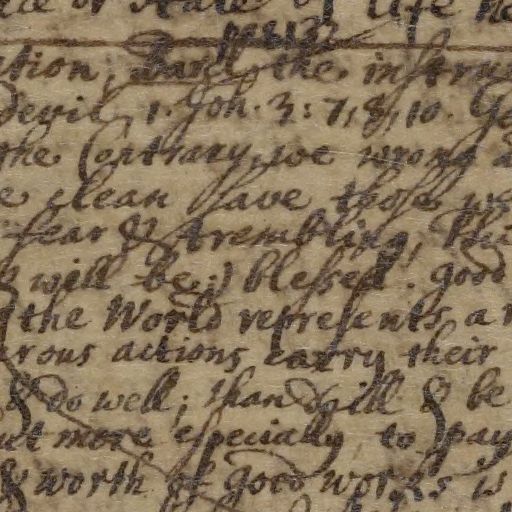 or state of life
ation, the instru
devil, 1. Joh. 3: 7, 8, 10.
the Contrary, we wrong
clean save those
fear & trembling,
will be blessed. good
the World represents a
rous actions carry their
& do well; than ill & be
more especially to pay
& worth of good works is